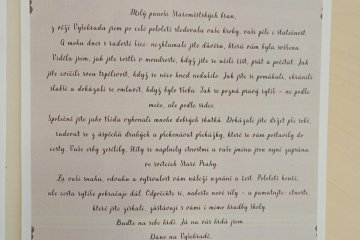 Milý panoši Staroměstských bran,
z věží Vyšehradu jsem po celé pololetí sledovala vaše kroky, vaši píli i statečnost.
A mohu dnes s radostí říci: nezklamali jste důvěru, která vám byla svěřena.
Viděla jsem, jak jste rostli v moudrosti, když jste se učili číst, psát a počítat. Jak
jste cvičili svou trpělivost, když se něco hned nedařilo. Jak jste si pomáhali, chránili
slabší a dokázali se omluvit, když bylo třeba. Tak se pozná pravý rytíř – ne podle
meče, ale podle srdce.
Společně jste jako třída vykonali mnoho dobrých skutků. Dokázali jste držet při sobě,
radovat se z úspěchů druhých a překonávat překážky, které se vám postavily do
cesty. Vaše erby zesílily, štíty se naplnily ctnostmi a vaše jména jsou nyní zapsána
ve svitcích Staré Prahy.
Za vaši snahu, odvahu a vytrvalost vám náleží uznání a čest. Pololetí končí,
ale cesta rytíře pokračuje dál. Odpočiňte si, naberte nové síly – a pamatujte: ctnosti,
které jste získali, zůstávají s vámi i mimo hradby školy.
Buďte na sebe hrdí. Já na vás hrdá jsem.
Dáno na Vyšehradě,